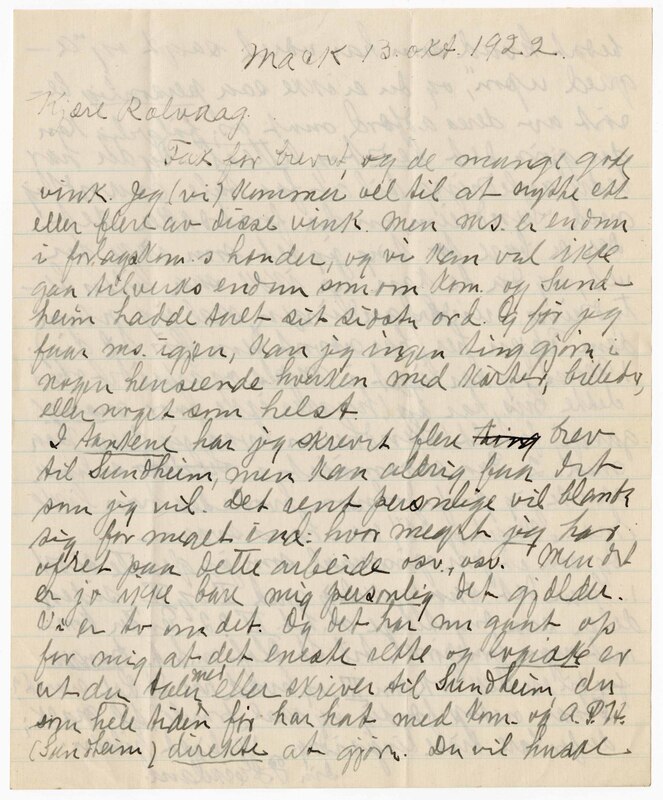 Mack 13. okt. 1922.
Kjære Rølvaag.
Tak for brevet, og de mange gode
vink. Jeg (vi) kommer vel til at nytte ett
eller flere av disse vink. Men ms. er endnu
i forlagskom.s hænder, og vi kan vel ikke
gaa tilverks endnu som om kom. og Sund-
heim hadde talt sit sidste ord. Og før jeg
faar ms. igjen, kan jeg ingen ting gjøre i
nogen henseende hverken med karter, billeder,
eller noget som helst.
I tankene har jeg skrevet flere brev
til Sundheim, men kan aldrig faa det
som jeg vil. Det rent personlige vil blande
sig for meget ind: hvor meget jeg har
ofret paa dette arbeide osv., osv. Men det
er jo ikke bare mig personlig det gjælder.
Vi er to om det. Og det har nu gaat op
for mig at det eneste rette og logiske er
at du taler med eller skriver til Sundheim, du
som hele tiden før har hat med kom. og A.P.H.
(Sundheim) direkte at gjøre. Du vil huske